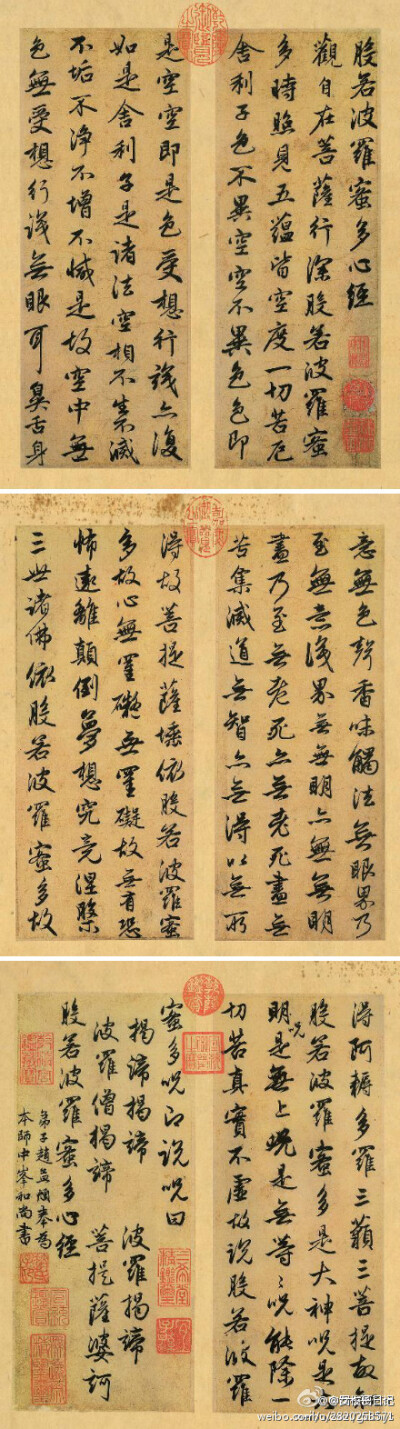 般若波羅蜜多心經
觀自在菩薩行深般若波羅蜜
多時照見五蘊皆空度一切苦厄
舍利子色不異空空不異色色即
是空空即是色受想行識亦復
如是舍利子是諸法空相不生不滅
不垢不淨不增不減是故空中無
色無受想行識無眼耳鼻舌身
意無色聲香味觸法無眼界乃
至無意識界無無明亦無無明
盡乃至無老死亦無老死盡無
苦集滅道無智亦無得以無所
得故菩提薩埵依般若波羅蜜
多故心無罣礙無罣礙故無有恐
怖遠離顛倒夢想究竟涅槃
三世諸佛依般若波羅蜜多故
得阿耨多羅三藐三菩提故知
般若波羅蜜多是大神咒是大
明咒是無上咒是無等等咒能除一
切苦真實不虛故說般若波羅
蜜多咒即說咒曰
揭諦揭諦 波羅揭諦
波羅僧揭諦 菩提薩婆訶
般若波羅蜜多心經
弟子趙孟頫奉為
本師中峯和尚書
weibo.com/u/2820268571